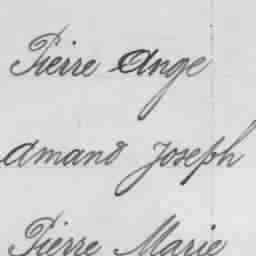 Pierre Ange
Amand Joseph
Pierre Marie